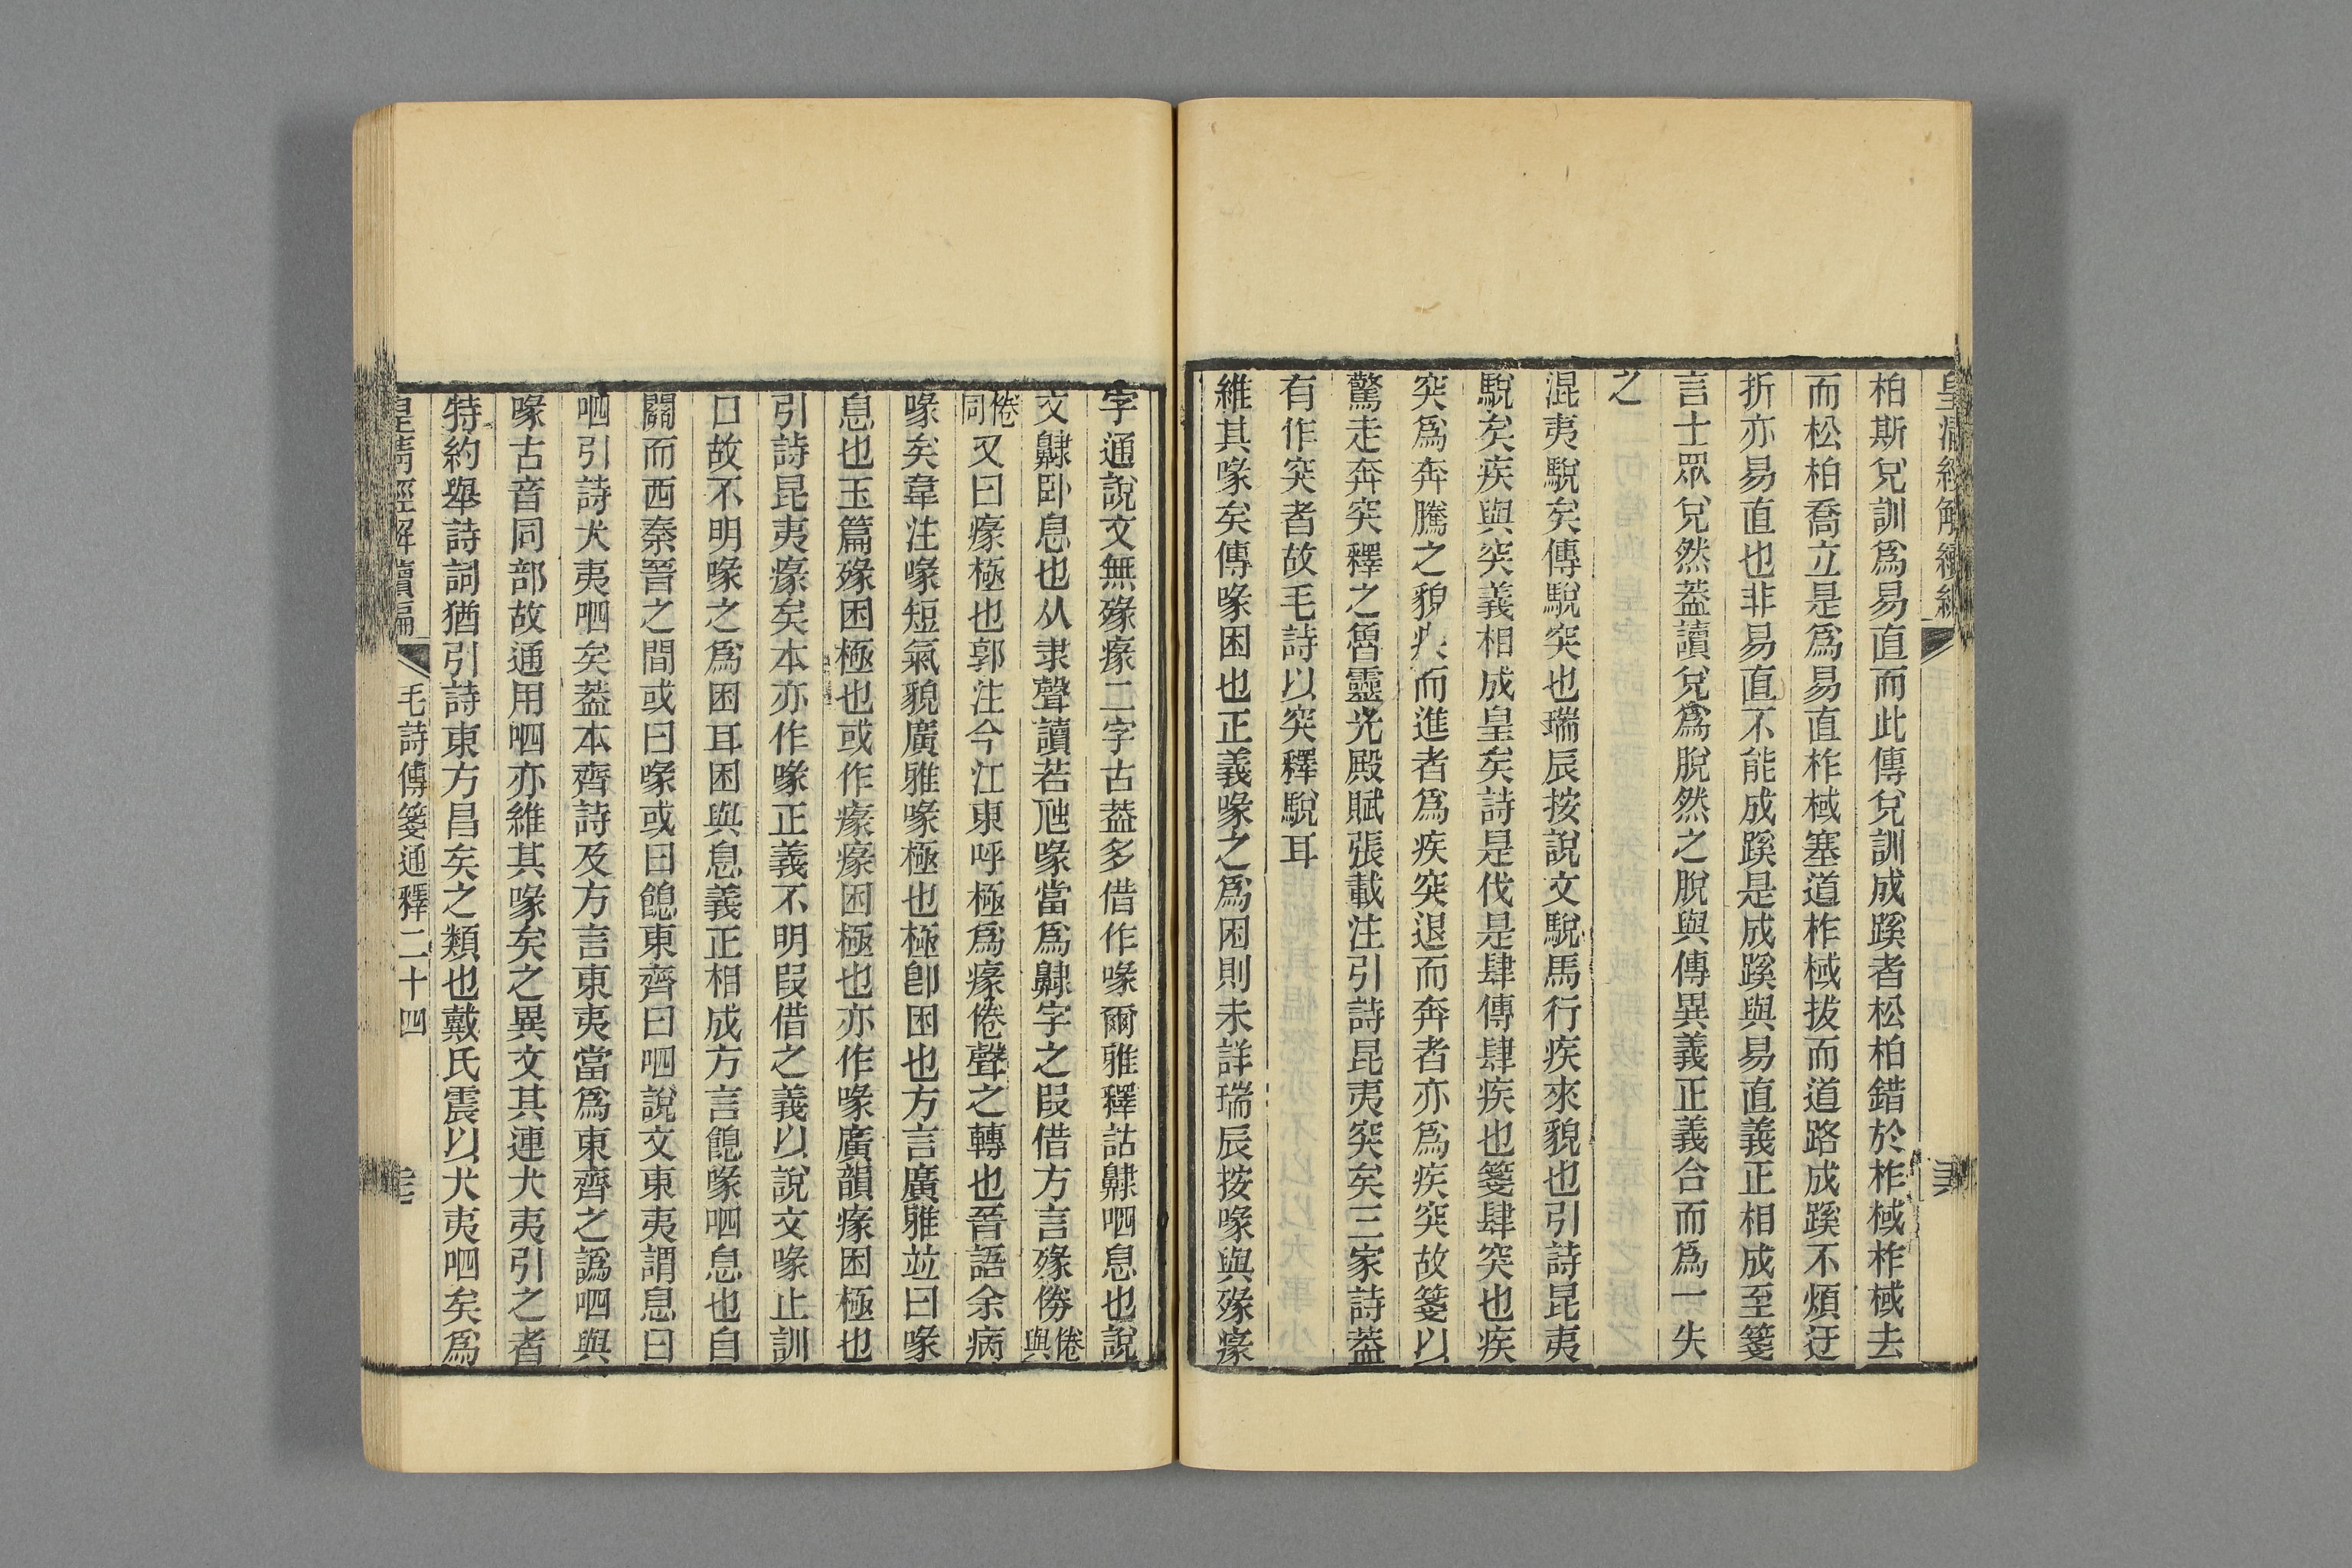 柏斯兌訓爲易直而此傳兌訓成蹊者松柏錯於柞棫柞棫去
而松柏喬立是爲易直柞棫塞道柞棫拔而道路成蹊不煩迂
折亦易直也非易直不能成蹊是成蹊與易直義正相成至箋
言士眾兌然葢讀兌爲脫然之脫與傳異義正義合而爲一失
之
混夷駾矣傳駾突也瑞辰按說文駾馬行疾來貌也引詩昆夷
駾矣疾與突義相成皇矣詩是伐是肆傳肆疾也箋肆突也疾
突爲奔騰之貌疾而進者爲疾突退而奔者亦爲疾突故箋以
驚走奔突釋之魯靈光殿賦張載注引詩昆夷突矣三家詩葢
有作突者故毛詩以突釋駾耳
維其喙矣傳喙困也正義喙之爲困則未詳瑞辰按喙與㱦瘃
字通說文無㱦瘃二字古葢多借作喙爾雅釋詁齂呬息也說
文齂臥息也从隶聲讀若虺喙當爲齂字之叚借方言㱦㑄倦與
倦同又曰瘃極也郭注今江東呼極爲瘃倦聲之轉也晉語余病
喙矣韋注喙短氣貌廣雅喙極也極卽困也方言廣雅並曰喙
息也玉篇㱦困極也或作瘃瘃困極也亦作喙廣韻瘃困極也
引詩昆夷瘃矣本亦作喙正義不明叚借之義以說文喙止訓
口故不明喙之爲困耳困與息義正相成方言䭒喙呬息也自
關而西秦晉之間或曰喙或曰䭒東齊曰呬說文東夷謂息曰
呬引詩犬夷呬矣葢本齊詩及方言東夷當爲東齊之譌呬與
喙古音同部故通用呬亦維其喙矣之異文其連犬夷引之者
特約舉詩詞猶引詩東方昌矣之類也戴氏震以犬夷呬矣爲
皇清經解續編
毛詩傳箋通釋二十四